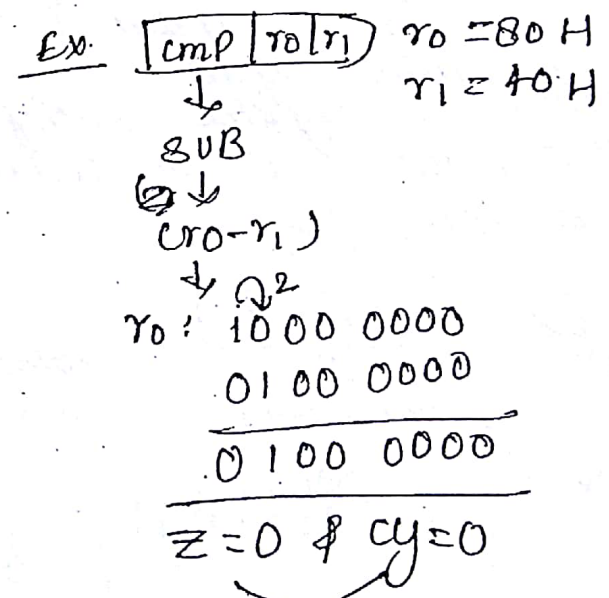 Ex. cmp r0 r1 r0 = 80 H
r1 = 40 H
↓
SUB
↓
(r0-r1)
↓ 2
r0 : 1000 0000
0100 0000
0100 0000
Z=0 & cy=0